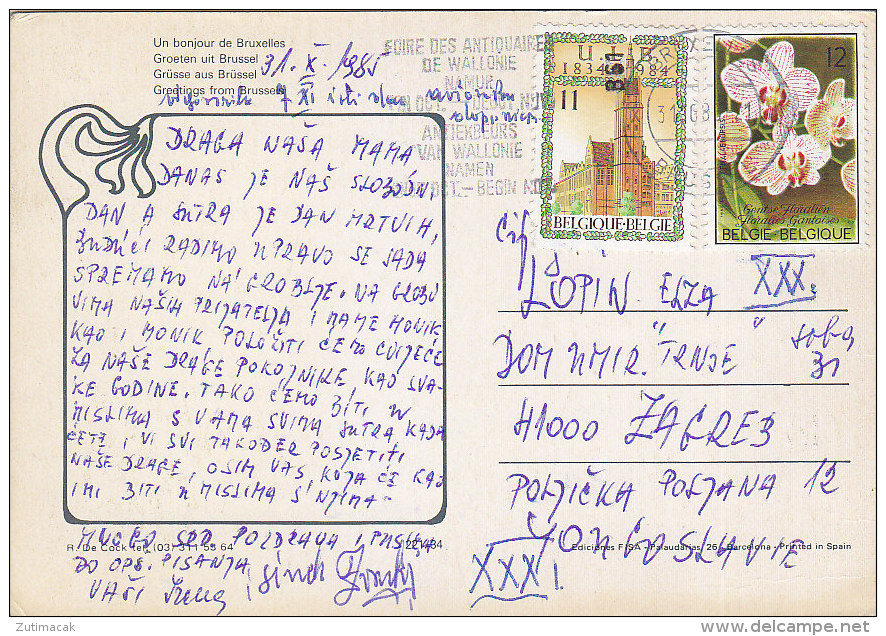 Un bonjour de Bruxelles
Groeten uit Brussel
Grüsse aus Brüssel
Greetings from Brussels
31. X. 1985
7 XI
FOIRE DES ANTIQUAIRES
DE WALLONIE
NAMUR
OCT. - DEBUT NOV
ANTIEKBEURS
VAN WALLONIE
NAMEN
OCT. - BEGIN NOV
U.L.B
1834 1984
11
BELGIQUE·BELGIE
12
Gentse Floraliën
Floralies Gantoises
BELGIE-BELGIQUE
DRAGA NAŠA MAMA
DANAS JE NAŠ SLOBODNI
DAN A SUTRA JE DAN MRTVIH,
BUDUĆI RADIMO UPRAVO SE SADA
SPREMAMO NA GROBLJE. NA GROBO
VIMA NAŠIH PRIJATELJA I MAME MONIK
KAO I MONIK POLOŽITI ĆEMO CVIJEĆE
ZA NAŠE DRAGE POKOJNIKE KAO SVA-
KE GODINE. TAKO ĆEMO BITI U
MISLIMA S VAMA SVIMA SUTRA KADA
ĆETE I VI SVI TAKOĐER POSJETITI
NAŠE DRAGE, OSIM VAS KOJA ĆE KAO
I MI BITI U MISLIMA S NJIMA.
MNOGO SRD POZDRAVA I PUSA
DO OPS. PISANJA
VAŠI
R. De Cock tel. (03) 311 53 64
Ediciones FISA - Palaudarias, 26 - Barcelona - Printed in Spain
LOPIN ELZA
XXX.
DOM UMIR. "TRNJE" soba
31
41000 ZAGREB
POLJIČKA POLJANA 12
JUGOSLAVIE
XXX!
Zutimacak
delcampe.net